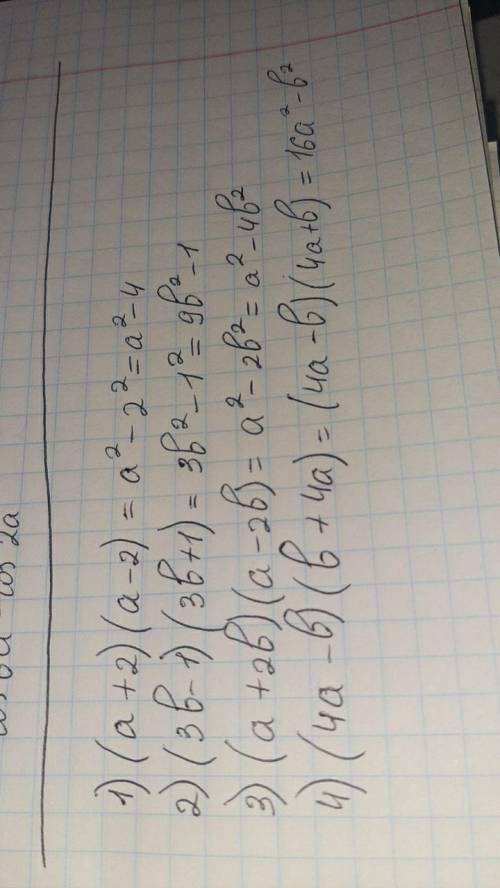 1) (a+2)(a-2) = a² - 2² = a² - 4
2) (3b-1)(3b+1) = 3b² - 1² = 9b² - 1
3) (a+2b)(a-2b) = a² - 2b² = a² - 4b²
4) (4a-b)(b+4a) = (4a-b)(4a+b) = 16a² - b²